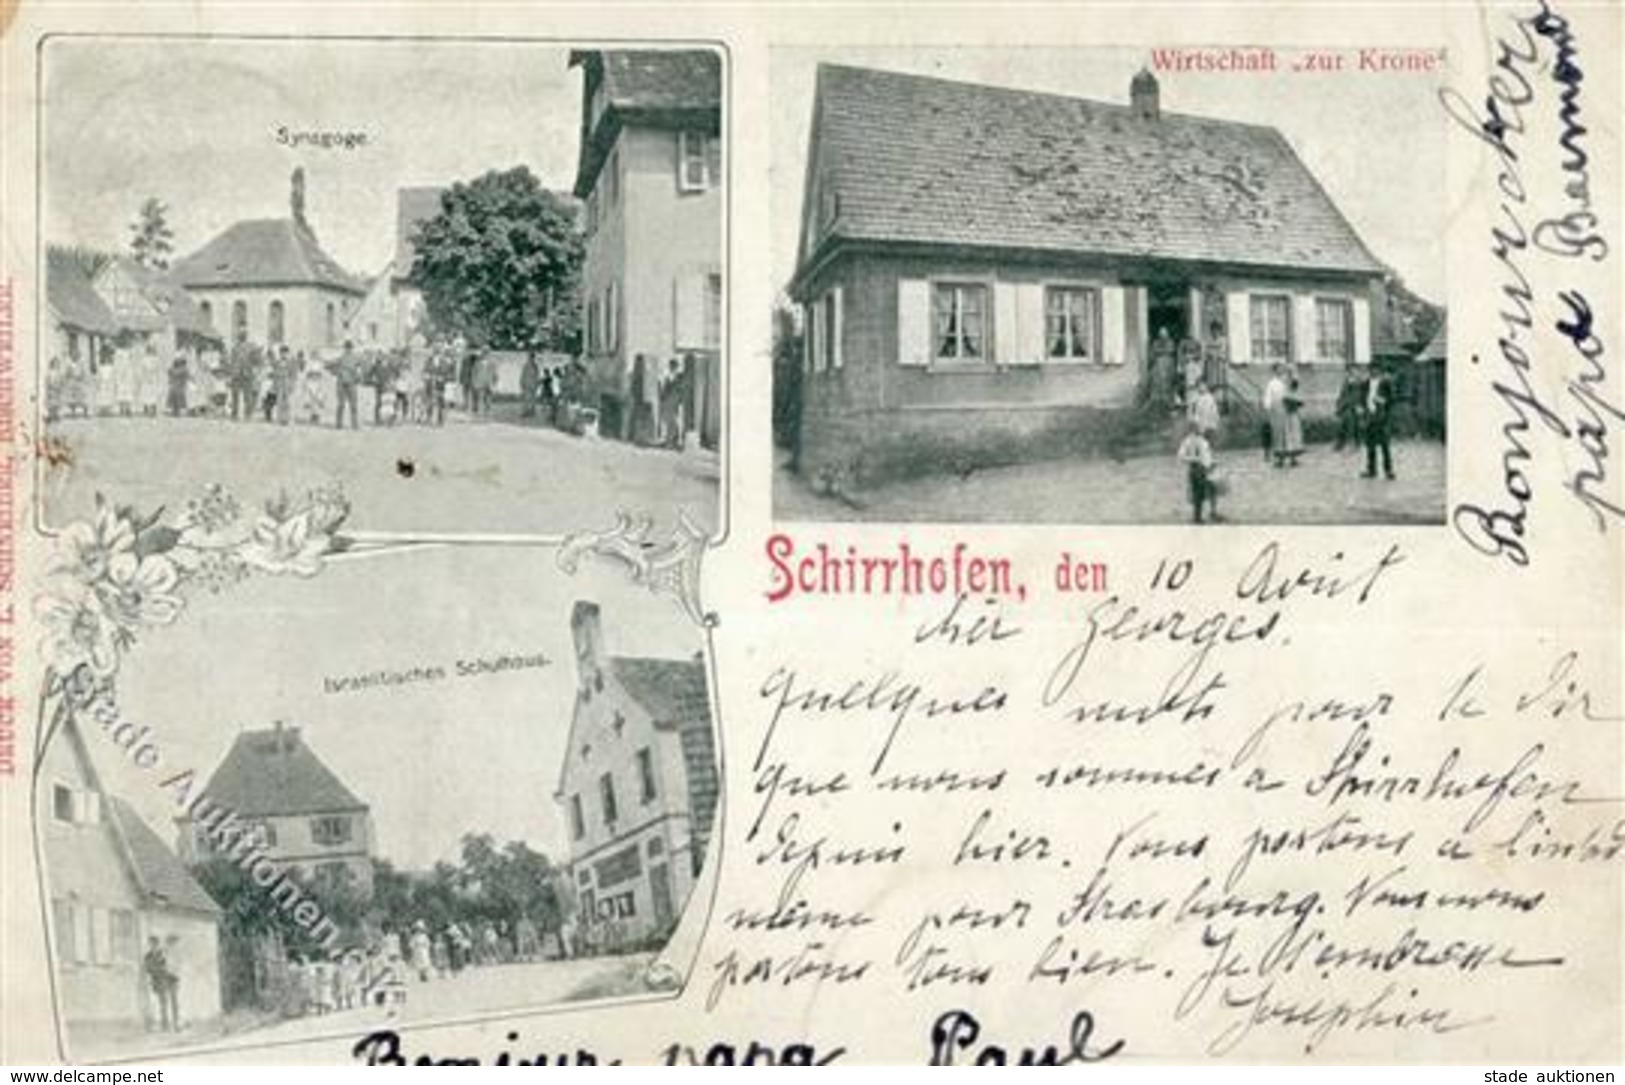 Synagoge.
Wirtschaft „zur Krone“
Israelitisches Schulhaus.
Schirrhofen, den 10 Avril
cher Georges.
quelques mots pour te dir
que nous sommes a Shirrhofen
depuis hier. Nous partons a
même pour Strasbourg. Nous nous
portons tous bien. Je t'embrasse
Josephin
Bonjour cher
papa
Bonjour papa Paul
DRUCK VON L.
Stade Auktionen
www.delcampe.net
stade auktionen